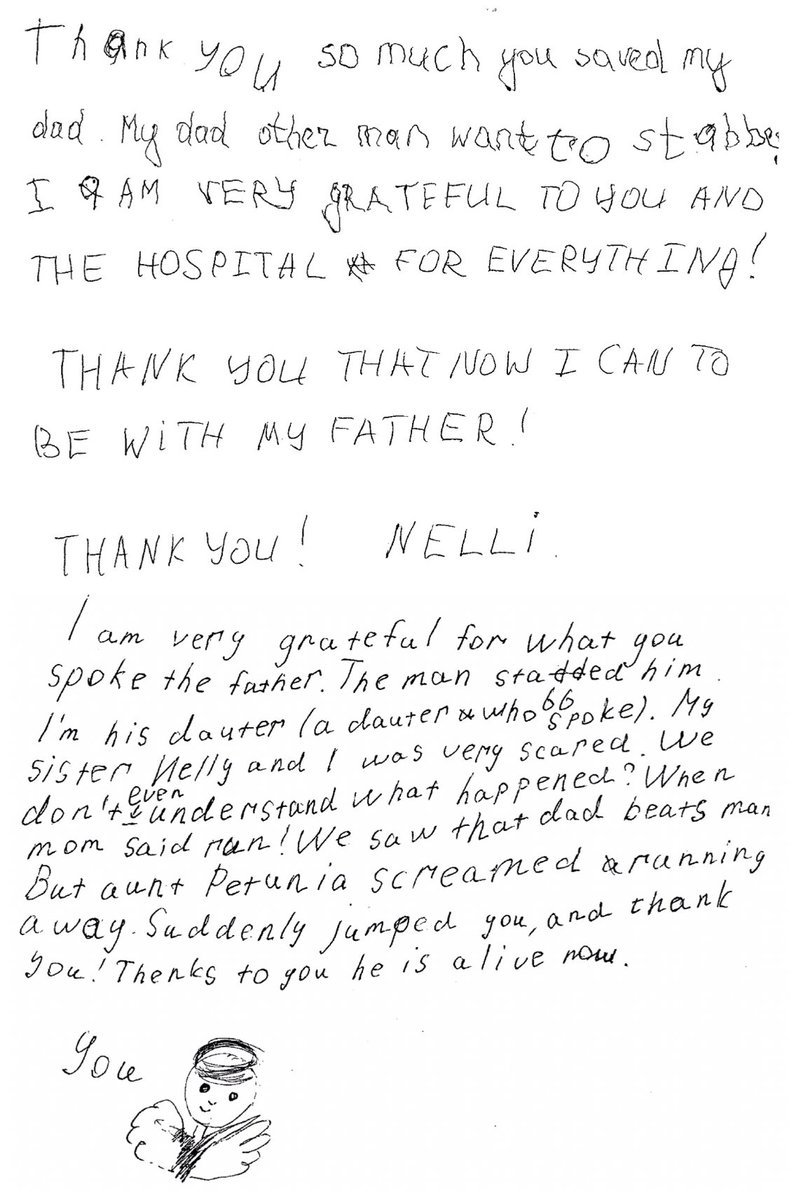 Thank you so much you saved my
dad. My dad other man want to stabbe
I AM VERY GRATEFUL TO YOU AND
THE HOSPITAL FOR EVERYTHING!
THANK YOU THAT NOW I CAN TO
BE WITH MY FATHER!
THANK YOU! NELLi.
I am very grateful for what you
spoke the father. The man stabbed him.
I'm his dauter (a dauter who spoke). My
sister Nelly and I was very scared. We
don't even understand what happened? When
mom said run! We saw that dad beats man
But aunt Petunia screamed running
away. Suddenly jumped you, and thank
you! Thenks to you he is alive now.
You